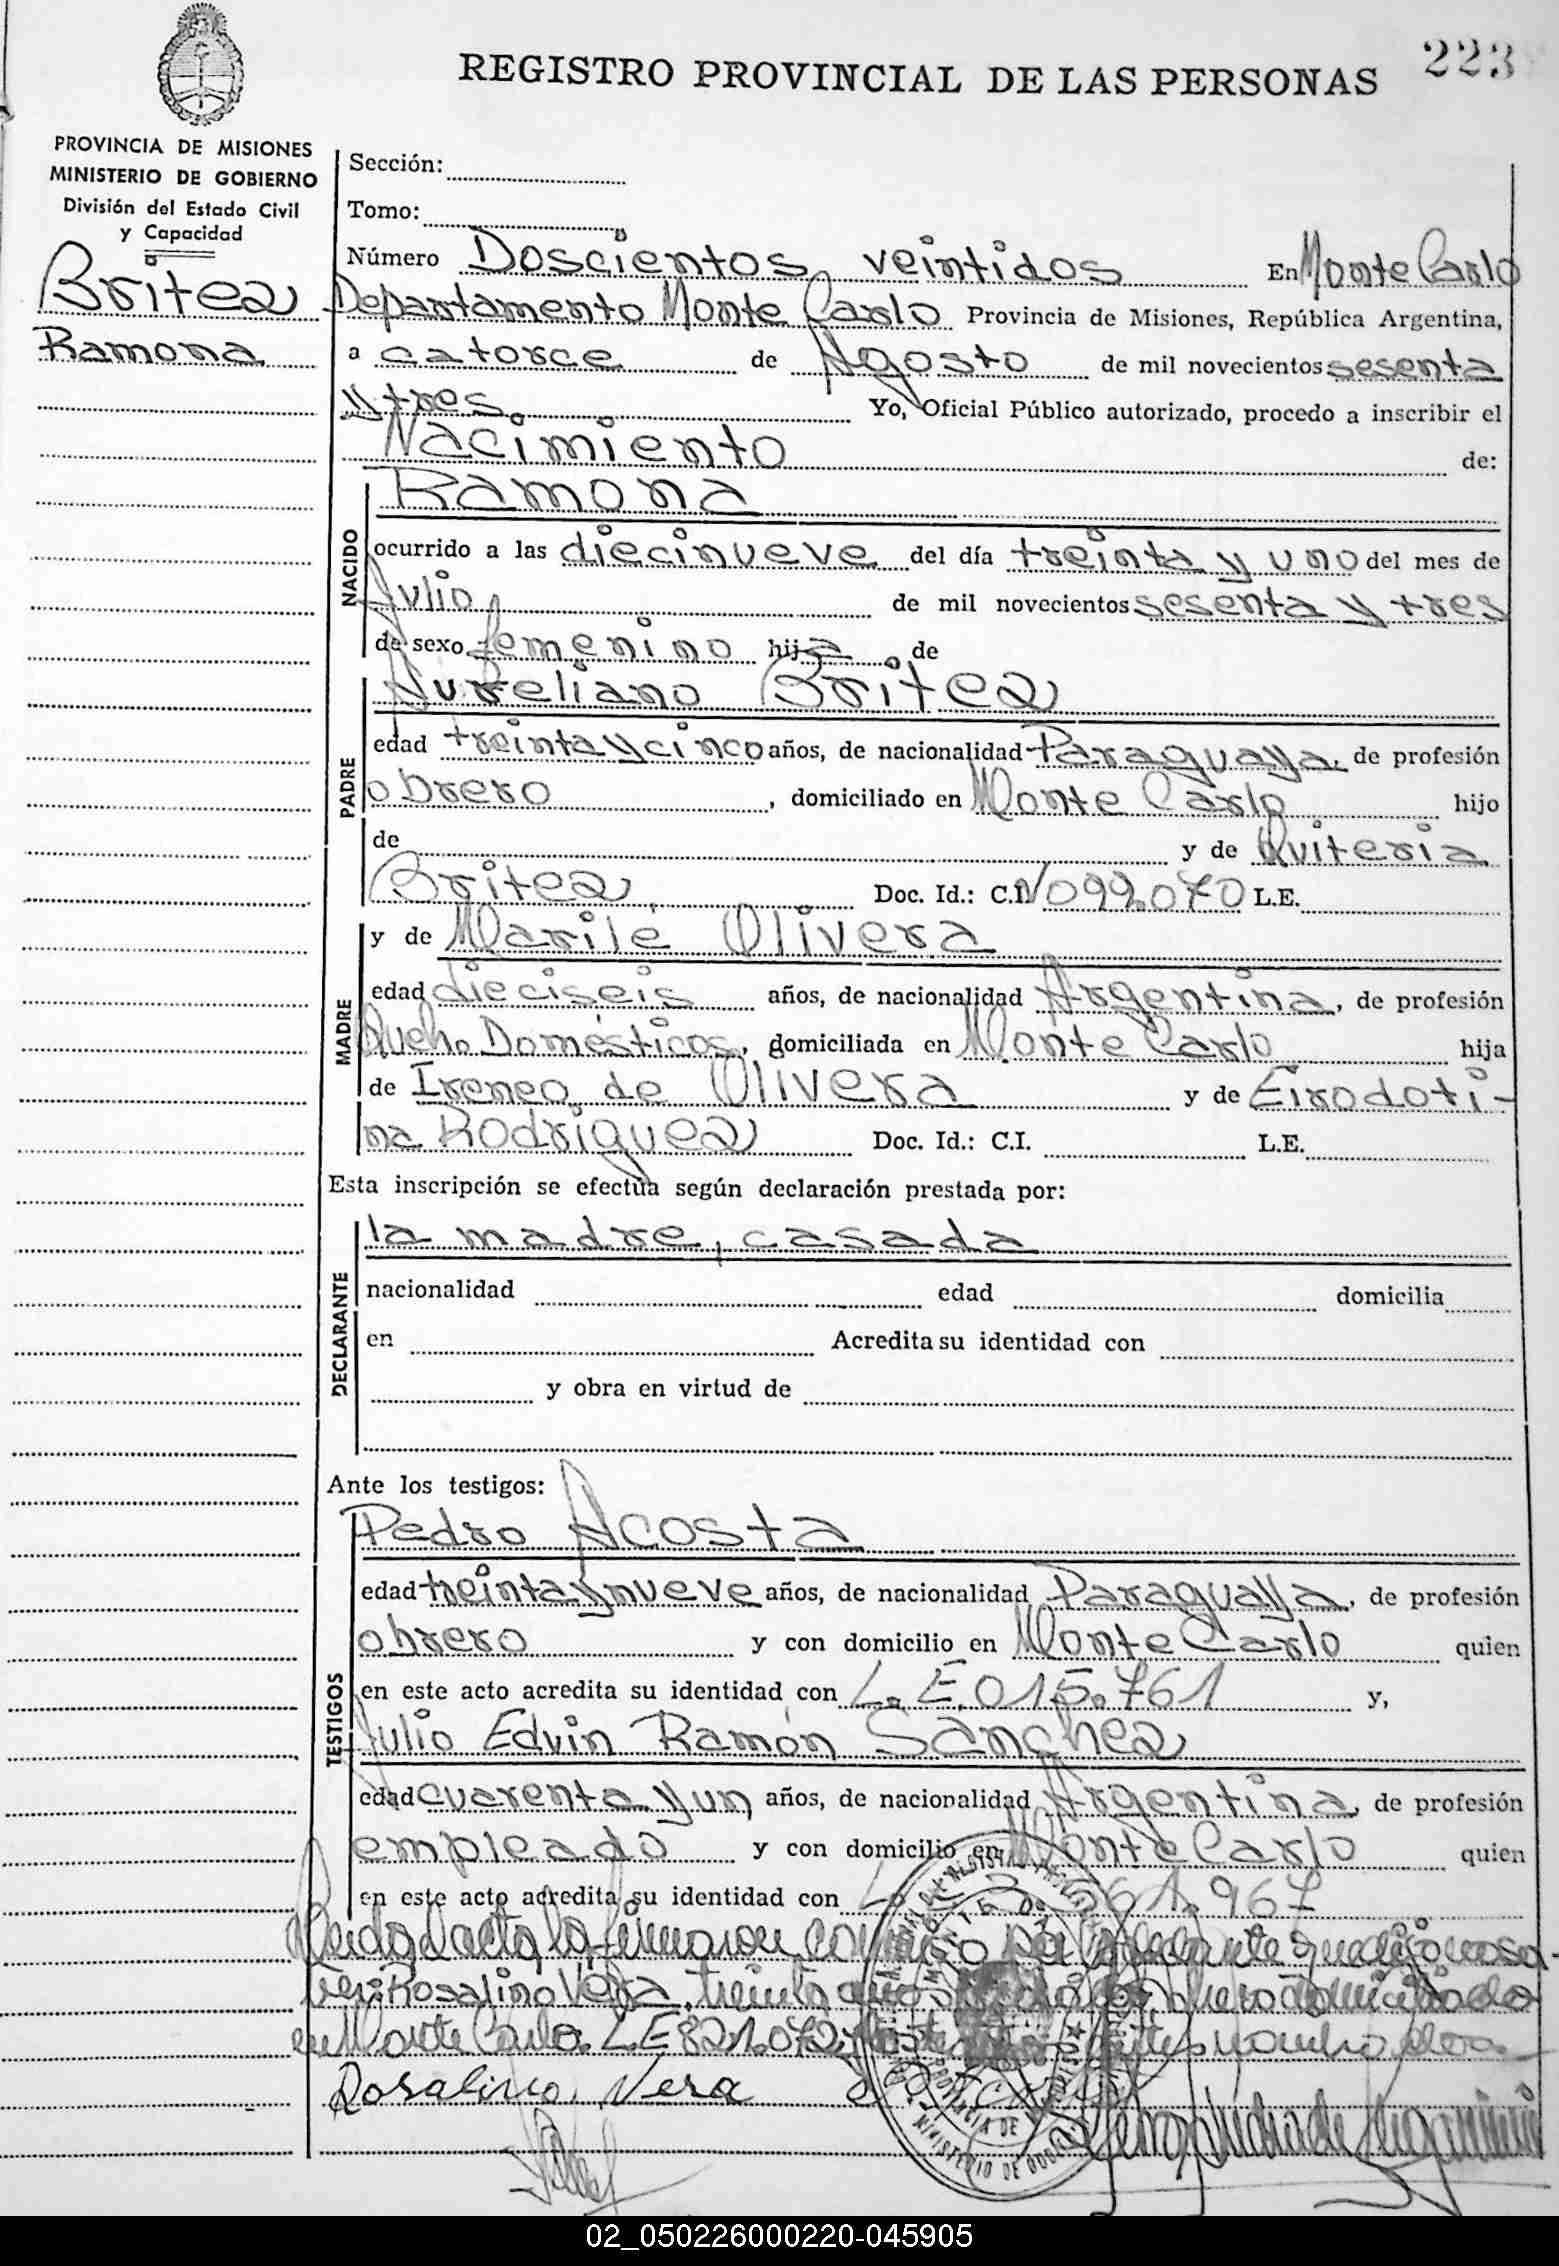 223
REGISTRO PROVINCIAL DE LAS PERSONAS
PROVINCIA DE MISIONES
MINISTERIO DE GOBIERNO
División del Estado Civil
y Capacidad
Britez
Ramona
Sección:
Tomo:
Número Doscientos veintidos En Monte Carlo
Departamento Monte Carlo Provincia de Misiones, República Argentina,
a catorce de Agosto de mil novecientos sesenta
y tres. Yo, Oficial Público autorizado, procedo a inscribir el
Nacimiento de:
NACIDO
Ramona
ocurrido a las diecinueve del día treinta y uno del mes de
Julio de mil novecientos sesenta y tres
de sexo femenino hija de
PADRE
Aureliano Britez
edad treinta y cinco años, de nacionalidad Paraguaya, de profesión
obrero, domiciliado en Monte Carlo hijo
de y de Quiteria
Britez. Doc. Id.: C.I. Nº 099.070 L.E.
MADRE
y de Marile Olivera
edad dieciseis años, de nacionalidad Argentina, de profesión
Queh. Domésticos, domiciliada en Monte Carlo hija
de Ireneo de Olivera y de Eirodoti-
na Rodriguez Doc. Id.: C.I. L.E.
Esta inscripción se efectúa según declaración prestada por:
DECLARANTE
la madre, casada
nacionalidad edad domicilia
en Acredita su identidad con
y obra en virtud de
Ante los testigos:
TESTIGOS
Pedro Acosta
edad treinta y nueve años, de nacionalidad Paraguaya, de profesión
obrero y con domicilio en Monte Carlo quien
en este acto acredita su identidad con L.E. 015.761 y,
Julio Edvin Ramón Sánchez
edad cuarenta y un años, de nacionalidad Argentina, de profesión
empleado y con domicilio en Monte Carlo quien
en este acto acredita su identidad con 961.967
Leida el acta la firmaron conmigo por la declarante que dijo no sa-
ber: Rosalino Vera, treinta años obrero domiciliado
en Monte Carlo. L.E 821.072
Rosalino Vera
PROVINCIA DE
MINISTERIO DE
02_050226000220-045905